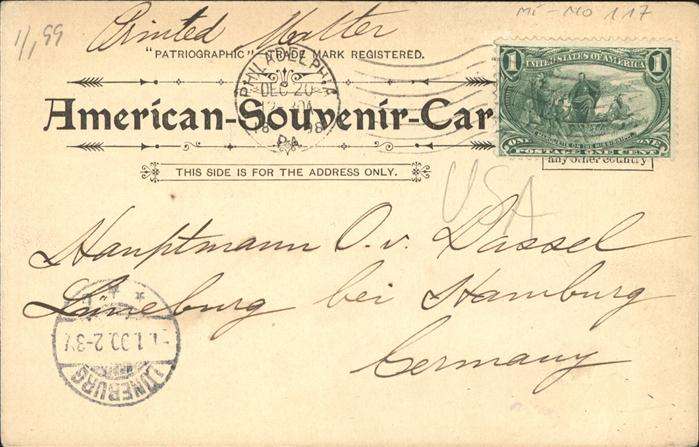 1/1,99
Printed Matter
Mi-No 117
"PATRIOGRAPHIC"—TRADE MARK REGISTERED.
PHILADELPHIA
DEC 20
98
PA.
1 UNITED STATES OF AMERICA 1
MARQUETTE ON THE MISSISSIPPI
ONE POSTAGE ONE CENT ONE
American-Souvenir-Car
any other country
THIS SIDE IS FOR THE ADDRESS ONLY.
USA
Hauptmann O. v. Dassel
Lüneburg bei Hamburg
Germany
LÜNEBURG